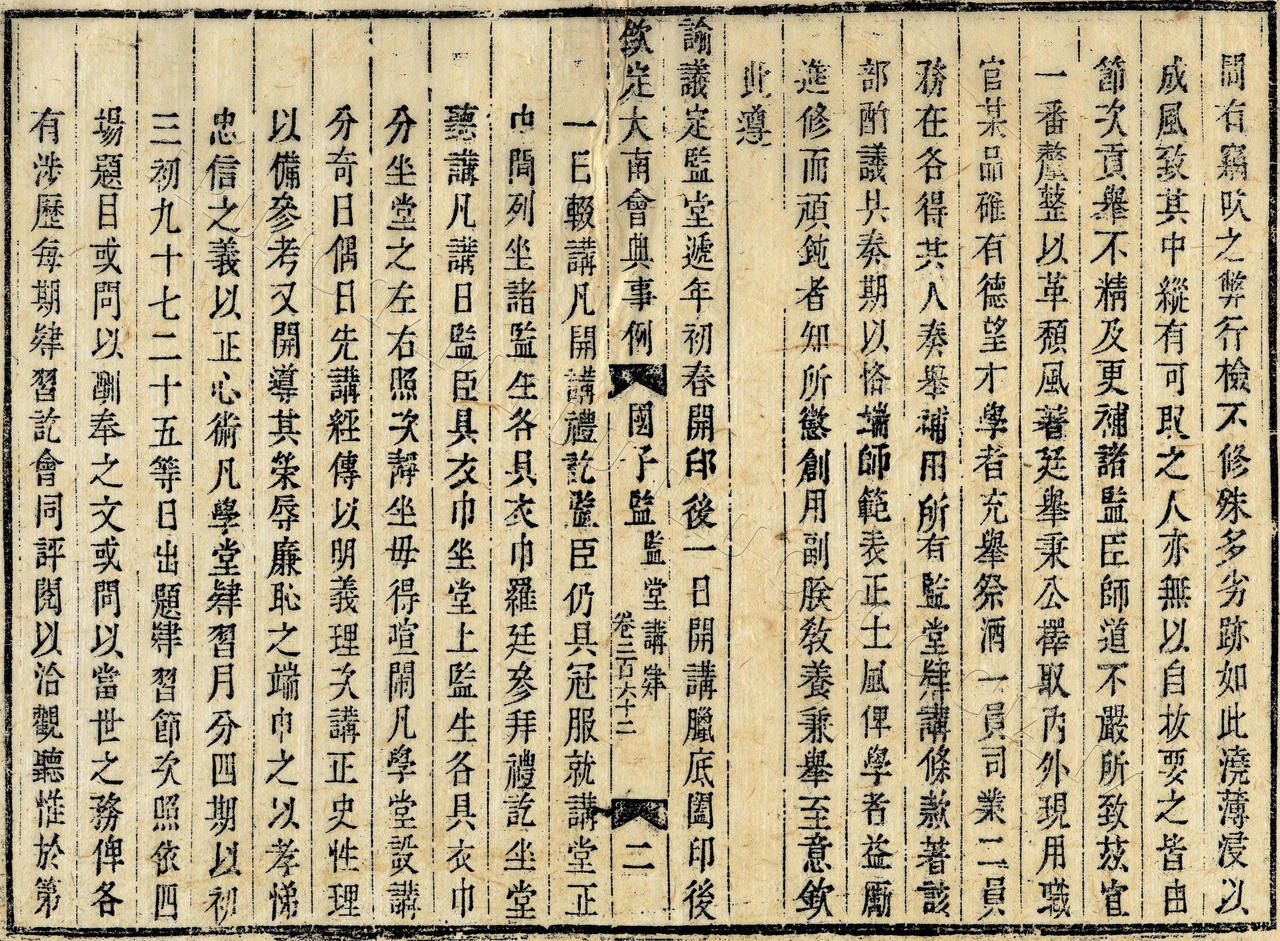 間有竊吹之弊行檢不修殊多劣跡如此澆薄浸以
成風致其中縱有可取之人亦無以自拔要之皆由
節次貢舉不精及更補諸監臣師道不嚴所致茲宜
一番釐整以革頹風著廷舉秉公擇取內外現用職
官某品確有德望才學者充舉祭酒一員司業二員
務在各得其人奏舉補用所有監堂肄講條款著該
部酌議具奏期以恪端師範表正士風俾學者益勵
進修而頑鈍者知所懲創用副朕敎養兼舉至意欽
此遵
諭議定監堂遞年初春開印後一日開講臘底闔印後
欽定大南會典事例 國子監 監堂講肄 卷二百六十二 二
一日輟講凡開講禮訖監臣仍具冠服就講堂正
中間列坐諸監生各具衣巾羅廷參拜禮訖坐堂
聽講凡講日監臣具衣巾坐堂上監生各具衣巾
分坐堂之左右照次靜坐毋得喧鬧凡學堂設講
分奇日偶日先講經傳以明義理次講正史性理
以備參考又開導其榮辱廉恥之端巾之以孝悌
忠信之義以正心術凡學堂肄習月分四期以初
三初九十七二十五等日出題肄習節次照依四
場題目或問以酬奉之文或問以當世之務俾各
有涉歷每期肄習訖會同評閱以洽觀聽惟於第